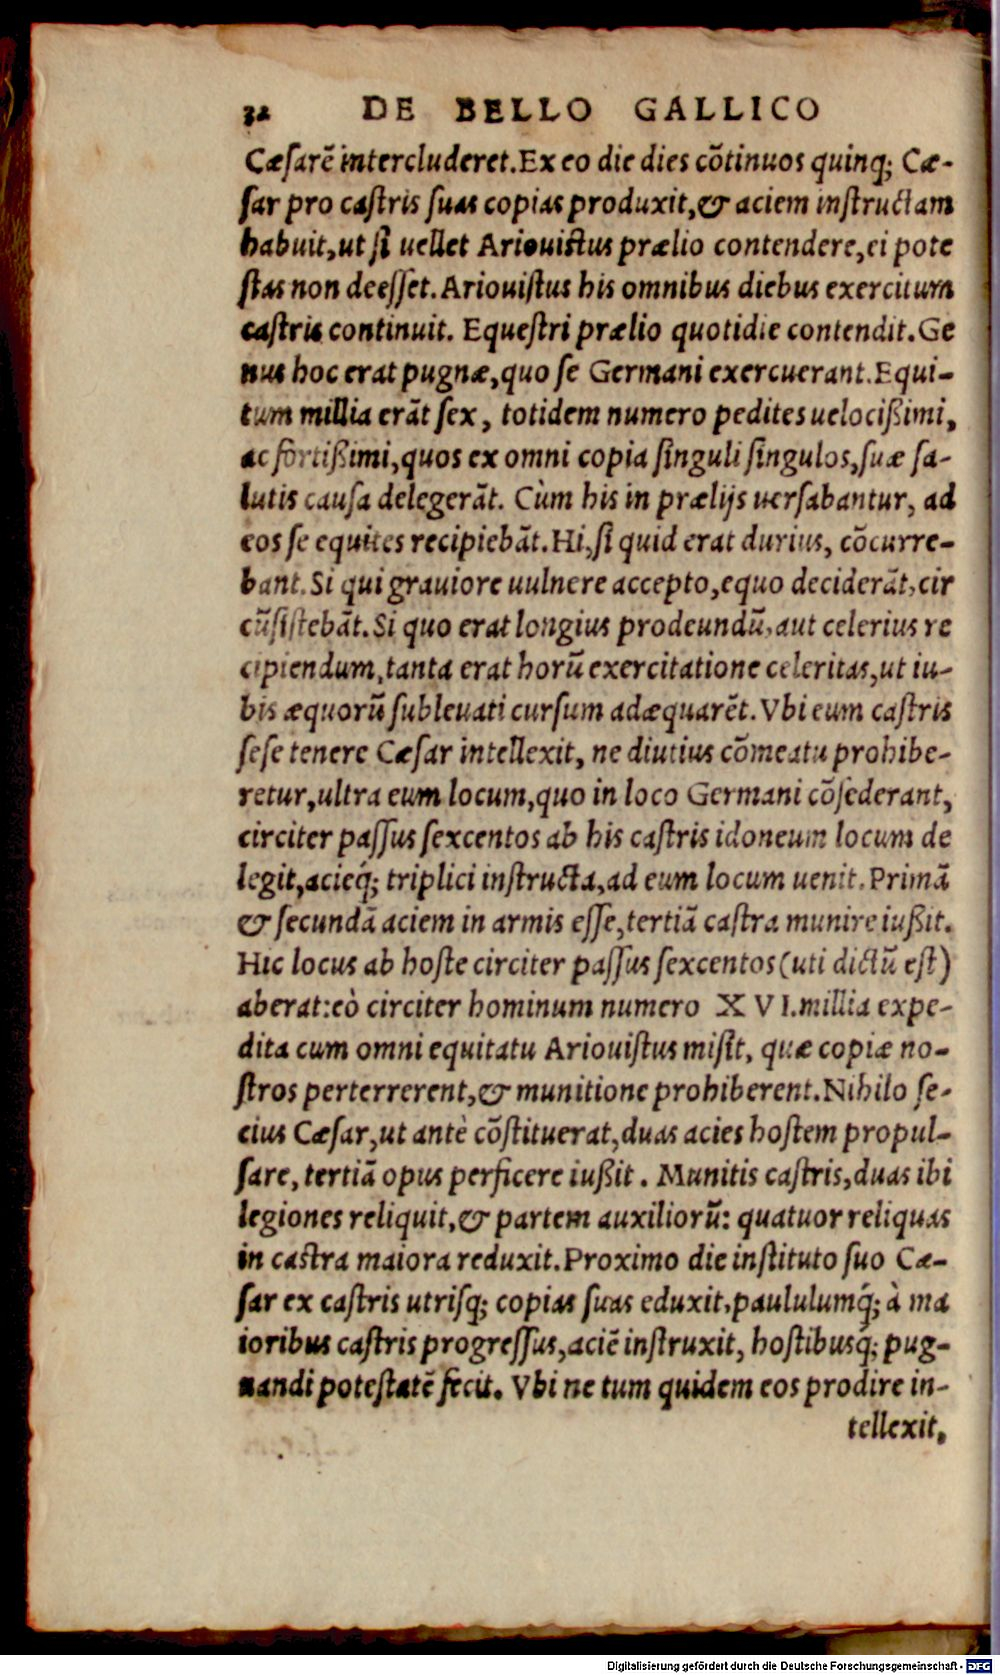 32 DE BELLO GALLICO
Cæſarē intercluderet. Ex eo die dies cōtinuos quinq; Cæ-
ſar pro caſtris ſuas copias produxit, & aciem inſtructam
habuit, ut ſi uellet Ariouiſtus prælio contendere, ei pote
ſtas non deeſſet. Ariouiſtus his omnibus diebus exercitum
caſtris continuit. Equeſtri prælio quotidie contendit. Ge
nus hoc erat pugnæ, quo ſe Germani exercuerant. Equi-
tum millia erāt ſex, totidem numero pedites uelocißimi,
ac fortißimi, quos ex omni copia ſinguli ſingulos, ſuæ ſa-
lutis cauſa delegerāt. Cùm his in prælijs uerſabantur, ad
eos ſe equites recipiebāt. Hi, ſi quid erat durius, cōcurre-
bant. Si qui grauiore uulnere accepto, equo deciderāt, cir
cūſiſtebāt. Si quo erat longius prodeundū, aut celerius re
cipiendum, tanta erat horū exercitatione celeritas, ut iu-
bis æquorū ſubleuati curſum adæquarēt. Vbi eum caſtris
ſeſe tenere Cæſar intellexit, ne diutius cōmeatu prohibe-
retur, ultra eum locum, quo in loco Germani cōſederant,
circiter paſſus ſexcentos ab his caſtris idoneum locum de
legit, acieq́; triplici inſtructa, ad eum locum uenit. Primā
& ſecundā aciem in armis eſſe, tertiā caſtra munire iußit.
Hic locus ab hoſte circiter paſſus ſexcentos (uti dictū eſt)
aberat: eò circiter hominum numero XVI. millia expe-
dita cum omni equitatu Ariouiſtus miſit, quæ copiæ no-
ſtros perterrerent, & munitione prohiberent. Nihilo ſe-
cius Cæſar, ut antè cōſtituerat, duas acies hoſtem propul-
ſare, tertiā opus perficere iußit. Munitis caſtris, duas ibi
legiones reliquit, & partem auxiliorū: quatuor reliquas
in caſtra maiora reduxit. Proximo die inſtituto ſuo Cæ-
ſar ex caſtris utriſq; copias ſuas eduxit, paululumq́; à ma
ioribus caſtris progreſſus, aciē inſtruxit, hoſtibusq́; pug-
nandi poteſtatē fecit. Vbi ne tum quidem eos prodire in-
tellexit,
Digitalisierung gefördert durch die Deutsche Forschungsgemeinschaft - DFG